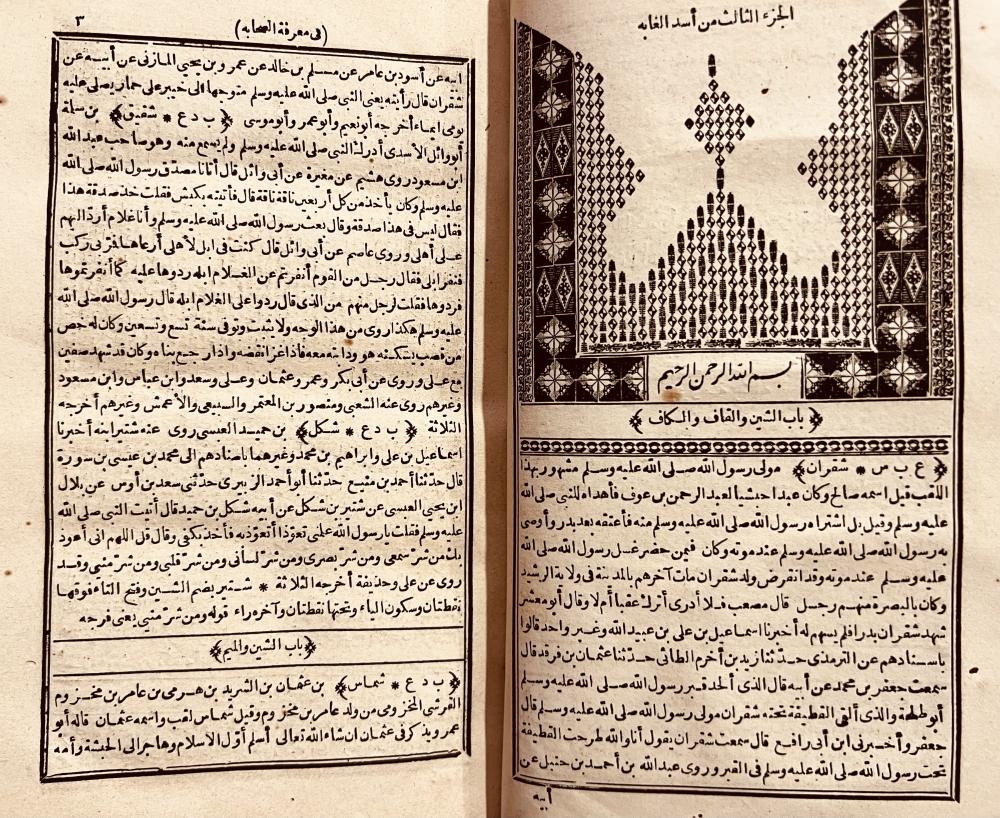 الجزء الثالث من أسد الغابه
بسم الله الرحمن الرحيم
﴿ باب الشين والقاف والكاف ﴾
﴿ ع ب س * شقران﴾ مولى رسول الله صلى الله عليه وسلم مشهور بهذا
اللقب قيل اسمه صالح وكان عبدا حبشيا لعبد الرحمن بن عوف فأهداه للنبي صلى الله
عليه وسلم وقيل بل اشتراه رسول الله صلى الله عليه وسلم منه فأعتقه بعد بدر وأوصى
به رسول الله صلى الله عليه وسلم عند موته وكان فيمن حضر غسل رسول الله صلى الله
عليه وسلم عند موته وقد انقرض ولد شقران مات آخرهم بالمدينة فى ولاية الرشيد
وكان بالبصرة منهم رجل قال مصعب فلا أدرى أترك عقبا أم لا وقال أبو معشر
شهد شقران بدرا فلم يسهم له أخبرنا اسماعيل بن على بن عبيد الله وغير واحد قالوا
باسنادهم عن الترمذى حدثنا زيد بن أخزم الطائى حدثنا عثمان بن فرقد قال
سمعت جعفر بن محمد عن أبيه قال الذى ألحد قبر رسول الله صلى الله عليه وسلم
أبو طلحة والذى ألقى القطيفة تحته شقران مولى رسول الله صلى الله عليه وسلم قال
جعفر وأخبرنى ابن أبى رافع قال سمعت شقران يقول أنا والله طرحت القطيفة
تحت رسول الله صلى الله عليه وسلم فى القبر وروى عبد الله بن أحمد بن حنبل عن
أبيه
(فى معرفة الصحابه)
٣
ابيه عن أسود بن عامر عن مسلم بن خالد عن عمرو بن يحيى المازنى عن أبيه عن
شقران قال رأيته يعنى النبى صلى الله عليه وسلم متوجها الى خيبر على حمار يصلى عليه
يومى ايماء أخرجه أبو نعيم وأبو عمر وأبو موسى ﴿ ب د ع * شقيق﴾ بن سلمة
أبو وائل الأسدى أدرك النبى صلى الله عليه وسلم ولم يسمع منه وهو صاحب عبد الله
ابن مسعود روى هشيم عن مغيرة عن أبى وائل قال أتانا مصدق رسول الله صلى الله
عليه وسلم وكان يأخذ من كل أربعين ناقة ناقة قال فأتيته بكبش فقلت خذ صدقة هذا
فقال ليس فى هذا صدقة وقال بعث رسول الله صلى الله عليه وسلم وأنا غلام أرد البهم
على أهلى وروى عاصم عن أبى وائل قال كنت فى ابل لأهلى أرعاها فمر بى ركب
فنفر ابلى فقال رجل من القوم أنفرتم عن الغلام ابله ردوها عليه كما أنفرتموها
فردوها فقلت لرجل منهم من الذى قال ردوا على الغلام ابله قال رسول الله صلى الله
عليه وسلم هكذا روى من هذا الوجه ولا يثبت وتوفى سنة تسع وتسعين وكان له خص
من قصب يسكنه هو ودابته معه فاذا غزا نقضه واذا رجع بناه وكان قد شهد صفين
مع على وروى عن أبى بكر وعمر وعثمان وعلى وسعد وابن عباس وابن مسعود
وغيرهم روى عنه الشعبى ومنصور بن المعتمر والسبيعى والأعمش وغيرهم أخرجه
الثلاثة ﴿ ب د ع * شكل﴾ بن حميد العبسى روى عنه شتير ابنه أخبرنا
اسماعيل بن على وابراهيم بن محمد وغيرهما باسنادهم الى محمد بن عيسى بن سورة
قال حدثنا أحمد بن منيع حدثنا أبو أحمد الزبيرى حدثنى سعد بن أوس عن بلال
ابن يحيى العبسى عن شتير بن شكل عن أبيه شكل بن حميد قال أتيت النبى صلى الله
عليه وسلم فقلت يا رسول الله علمنى تعوذا أتعوذ به فأخذ بكفى وقال قل اللهم انى أعوذ
بك من شر سمعى ومن شر بصرى ومن شر لسانى ومن شر قلبى ومن شر منيى وقد
روى عن على وحذيفة أخرجه الثلاثة * شتير بضم الشين وفتح التاء فوقها
نقطتان وسكون الياء وتحتها نقطتان وآخره راء قوله ومن شر منيى يعنى فرجه
﴿ باب الشين والميم ﴾
﴿ ب د ع * شماس﴾ بن عثمان بن الشريد بن هرمى بن عامر بن مخزوم
القرشى المخزومى من ولد عامر بن مخزوم وقيل شماس لقب واسمه عثمان قاله أبو
عمر ويذكر فى عثمان ان شاء الله تعالى أسلم أول الاسلام وهاجر الى الحبشة وأمه